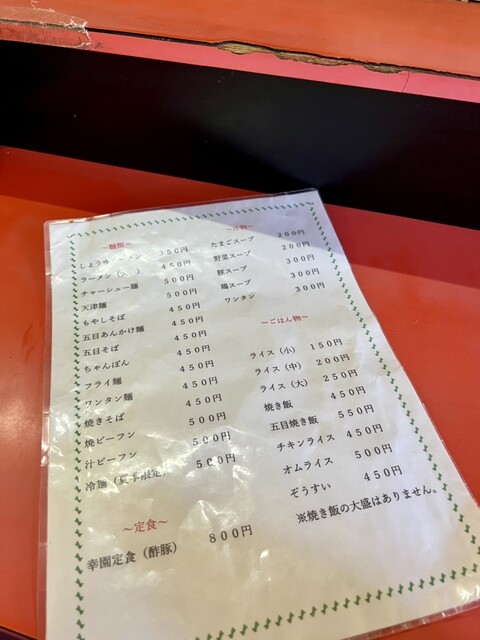 ～麺類～
しょうゆ 50円
ラーメン 450円
チャーシュー麺 500円
天津麺 500円
もやしそば 450円
五目あんかけ麺 450円
五目そば 450円
ちゃんぽん 450円
フライ麺 450円
ワンタン麺 450円
焼きそば 450円
焼ビーフン 500円
汁ビーフン 500円
冷麺（夏季限定） 500円
～定食～
幸園定食（酢豚） 800円
～汁物～
たまごスープ 200円
野菜スープ 200円
豚スープ 300円
鶏スープ 300円
ワンタン 300円
～ごはん物～
ライス（小） 150円
ライス（中） 200円
ライス（大） 250円
焼き飯 450円
五目焼き飯 550円
チキンライス 450円
オムライス 500円
ぞうすい 450円
※焼き飯の大盛はありません。